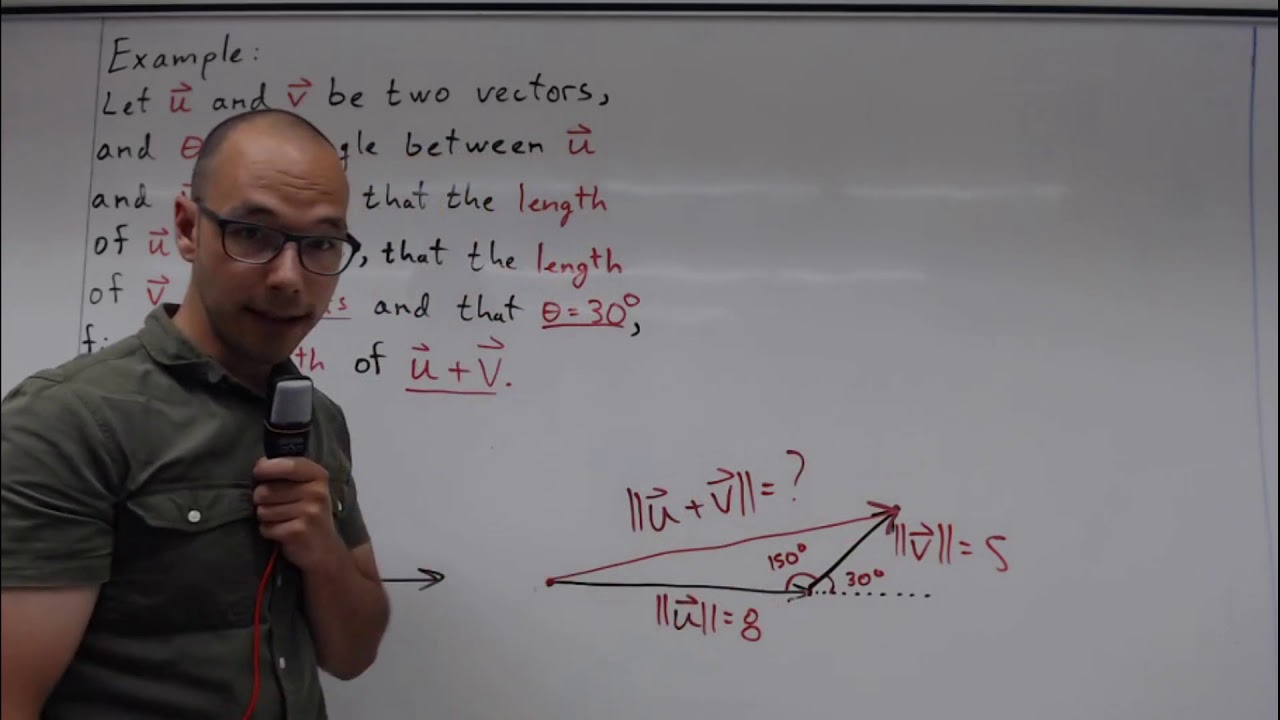 Example:
Let u⃗ and v⃗ be two vectors,
and θ between u⃗
and that the length
of u⃗ , that the length
of v⃗ and that θ = 30°,
of u⃗ + v⃗.
||u⃗ + v⃗|| = ?
150°
||v⃗|| = 5
30°
||u⃗|| = 8